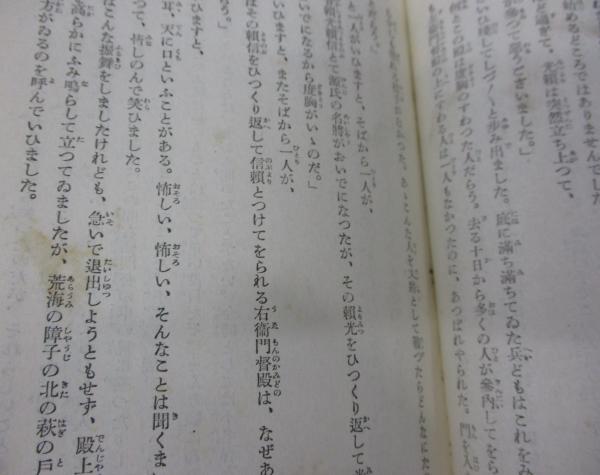 始めるところではありませんでした
過ぎて、光頼は突然立ち上つて、
うございました。」
ひ殘してしづ／＼と歩み出ました。庭に滿ち滿ちてゐた兵どもはこれをみ
この殿は度胸のすわつた人だらう。去る十日から多くの人が參内してをら
すわる人は一人もなかつたのに、あつぱれやられた。門を
あゝこんな人を大將として戰つたらどんなにな
と一人がいひますと、そばから一人が、
頼信とて源氏の名將がおいでになつたが、その頼光をひつくり返して光
いでになるから度胸がいゝのだ。」
いひますと、またそばから一人が、
はその頼信をひつくり返して信頼とつけてをられる右衞門督殿は、なぜあ
。」
ひますと、
耳、天に口といふことがある。怖しい、怖しい、そんなことは聞くま
つて、しのんで笑ひました。
はこんな振舞をしましたけれども、急いで退出しようともせず、殿上
高らかにふみ鳴らして立つてゐましたが、荒海の障子の北の萩の戸
方がゐるのを呼んでいひました。